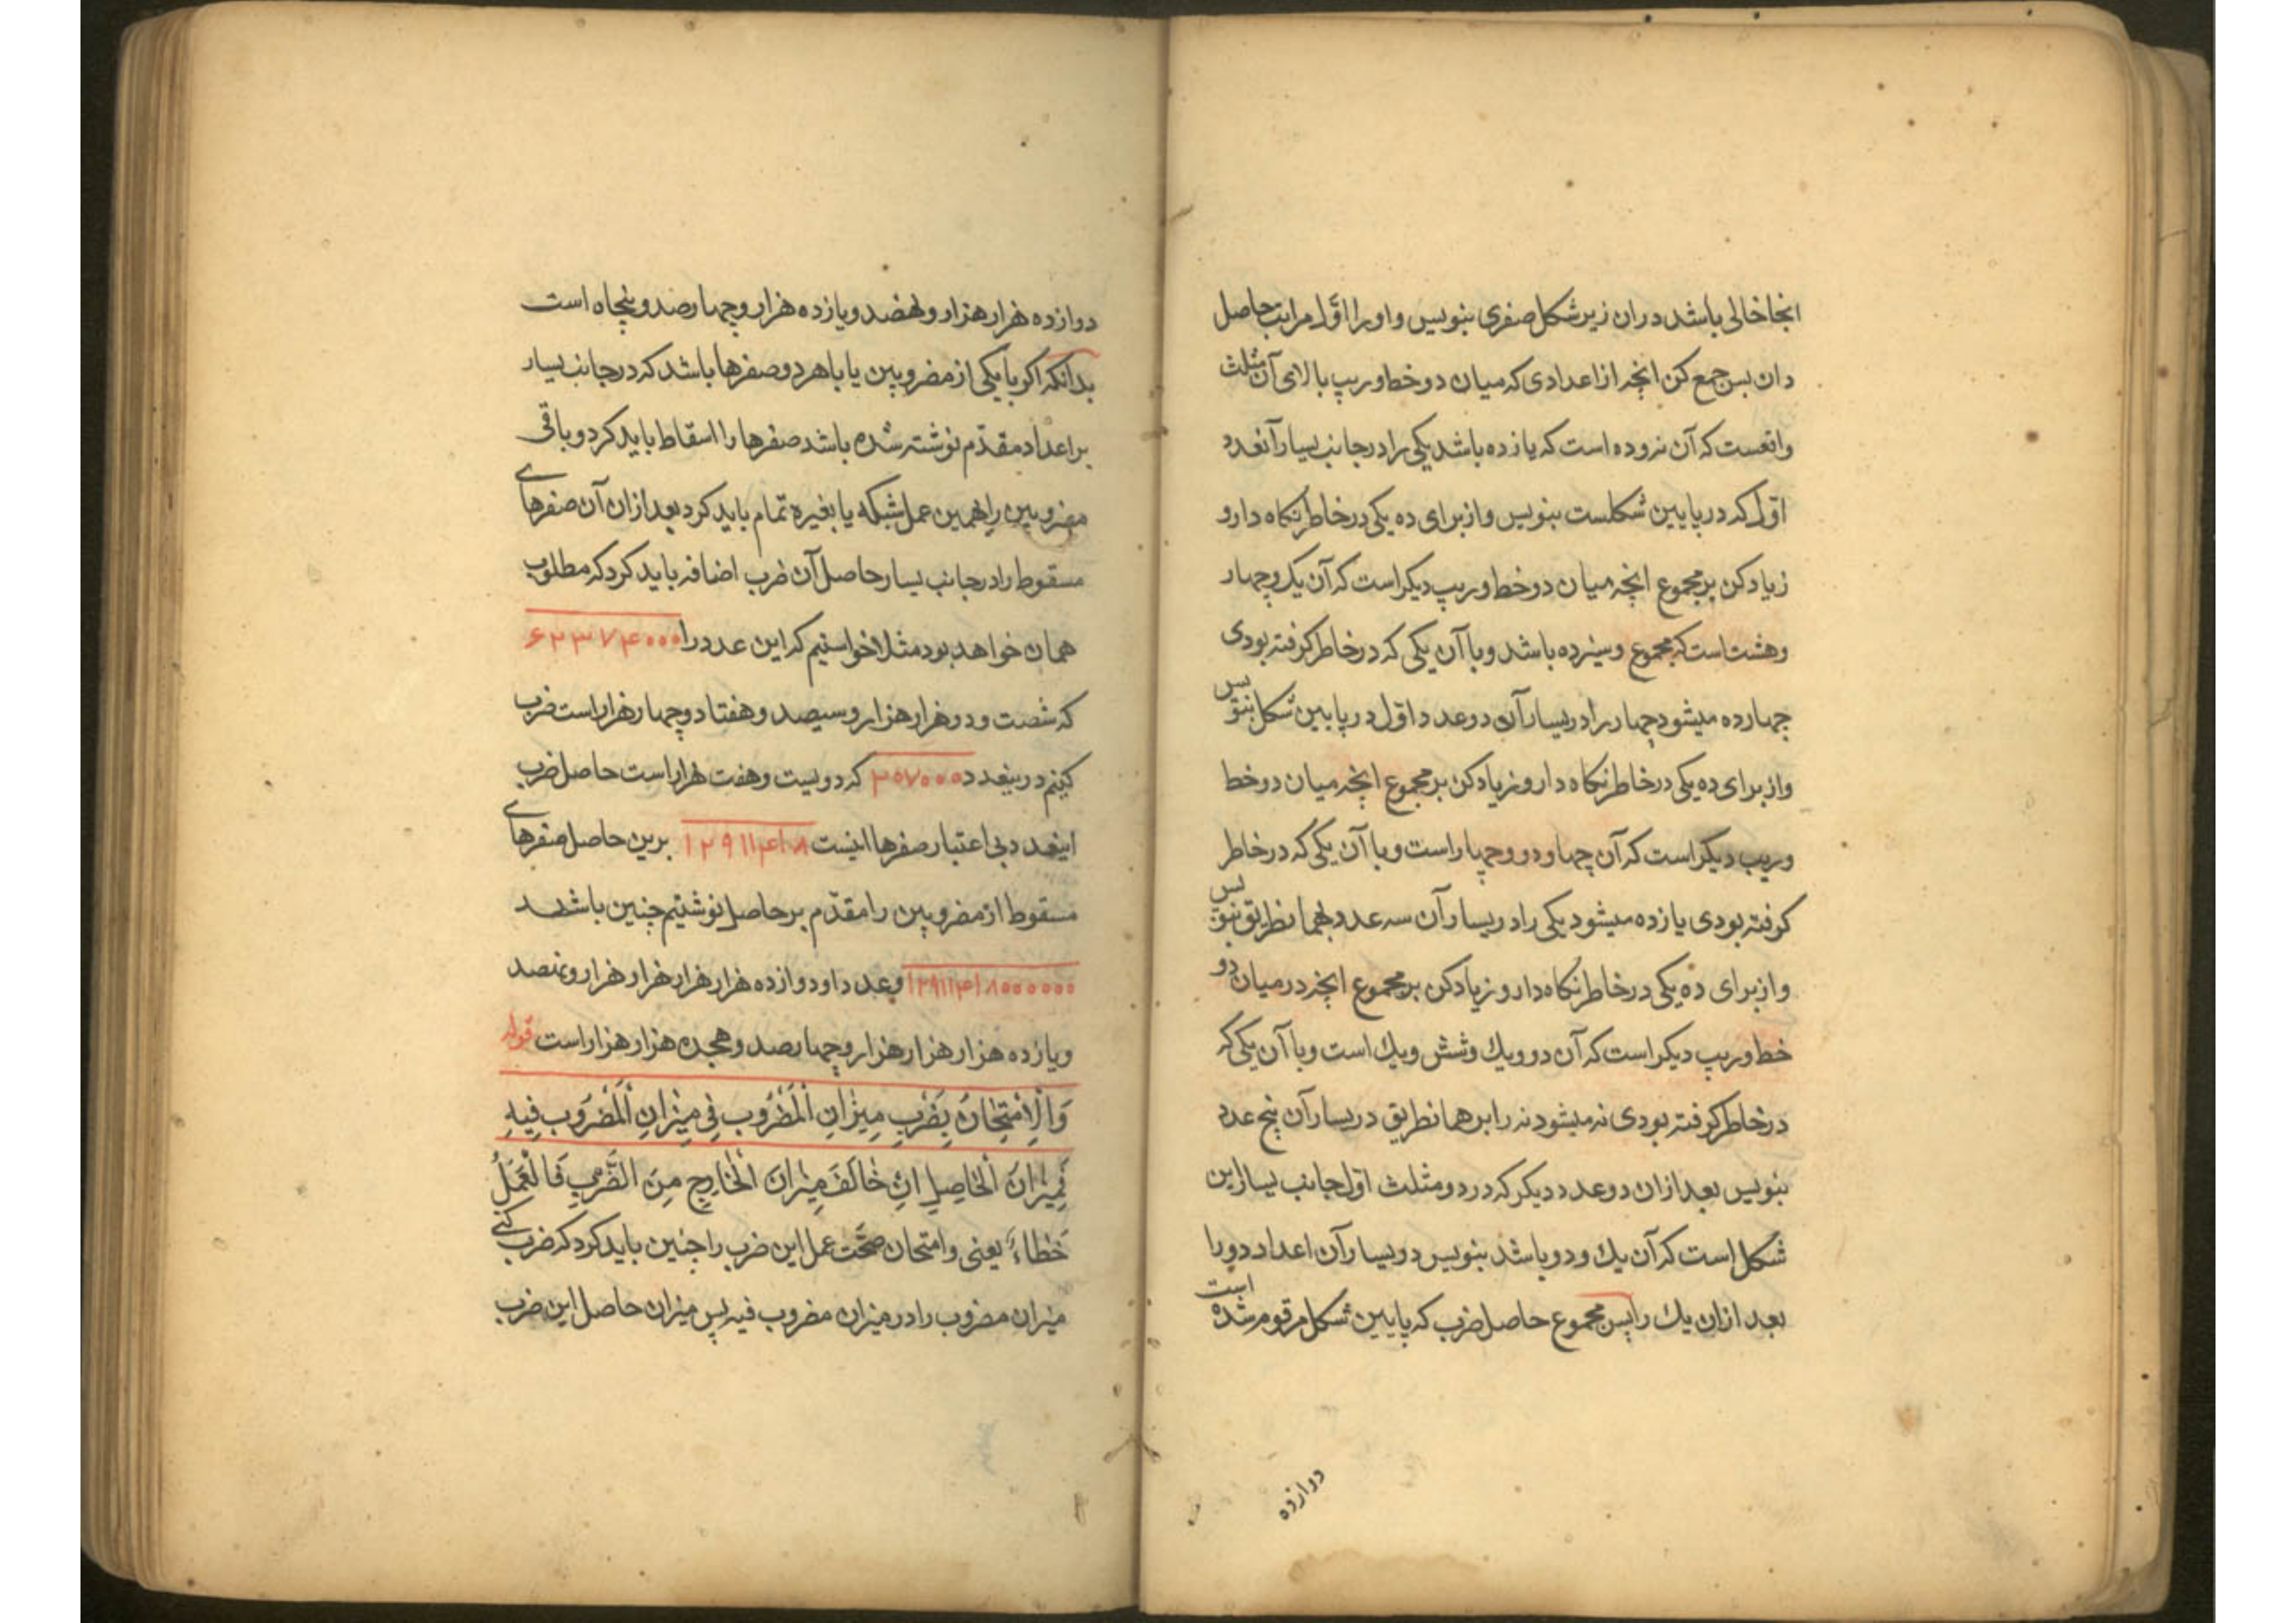 انجا خالی باشد دران زیر شکل صفری بنویس و او را اوّل مراتب حاصل
دان پس جمع کن انچه از اعدادی که میان دو خط وریب بالای آن مثلث
واقعست که آن نه و ده است که یازده باشد یکی را در جانب یسار آنعدد
اوّل که در پایین شکلست بنویس و از برای ده یکی در خاطر نکاه دار و
زیاد کن بر مجموع انچه میان دو خط وریب دیکر است که آن یک و چهار
و هشت است که مجموع و سیزده باشد و با آن یکی که در خاطر کرفته بودی
چهارده میشود چهار را در یسار آن دو عدد اوّل در پایین شکل بنویس
و از برای ده یکی در خاطر نکاه دار و زیاد کن بر مجموع انچه میان دو خط
وریب دیکر است که آن چهار و دو و چهار است و با آن یکی که در خاطر
کرفته بودی یازده میشود یکی را در یسار آن سه عدد بهمانطریق بنویس
و از برای ده یکی در خاطر نکاه دار و زیاد کن بر مجموع انچه در میان دو
خط وریب دیکر است که آن دو و یک و شش و یک است و با آن یکی که
در خاطر کرفته بودی نه میشود نه را بر همانطریق در یسار آن پنج عدد
بنویس بعد ازان دو عدد دیکر که در دو مثلث اوّل جانب یسار این
شکل است که آن یک و دو باشد بنویس در یسار آن اعداد دو را
بعد ازان یک را پس مجموع حاصل ضرب که پایین شکل مرقوم شده است
دوازده
دوازده هزار هزار و نهصد و یازده هزار و چهارصد و پنجاه است
بدانکه اکر با یکی از مضروبین یا با هر دو صفرها باشد که در جانب یسار
بر اعداد مقدّم نوشته شده باشد صفرها را اسقاط باید کرد و باقی
مضروبین را بهمین عمل شبکه یا بغیره تمام باید کرد بعد ازان آن صفرهای
مسقوط را در جانب یسار حاصل آن ضرب اضافه باید کرد که مطلوب
همان خواهد بود مثلا خواستیم که این عدد را ۶۲۳۷۴۰۰۰
که شصت و دو هزار هزار و سیصد و هفتاد و چهار هزار است ضرب
کنیم درینعدد ۲۰۷۰۰۰ که دویست و هفت هزار است حاصل ضرب
اینعدد بی اعتبار صفرها اینست ۱۲۹۱۱۴۱۸ برین حاصل صفرهای
مسقوط از مضروبین را مقدّم بر حاصل نوشتیم چنین باشد
۱۲۹۱۱۴۱۸۰۰۰۰۰۰ و عدد او دوازده هزار هزار هزار و هزار و نهصد
و یازده هزار هزار هزار و چهارصد و هجده هزار هزار است قوله
وَالْاِمْتِحَانُ بِضَرْبِ مِیزَانِ الْمَضْرُوبِ فِی مِیزَانِ الْمَضْرُوبِ فِیهِ
فَمِیزَانُ الْحَاصِلِ اِنْ خَالَفَ مِیزَانَ الْخَارِجِ مِنَ الضَّرْبِ فَالْعَمَلُ
خَطَاءٌ یعنی و امتحان صحّت عمل این ضرب را چنین باید کرد که ضرب کنی
میزان مضروب را در میزان مضروب فیه پس میزان حاصل این ضرب